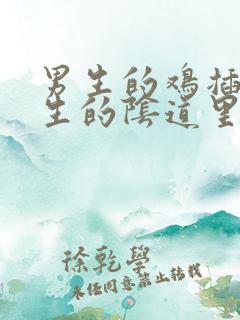 男生的鸡插
生的陰道里
徐乾學
未经同意禁止转载